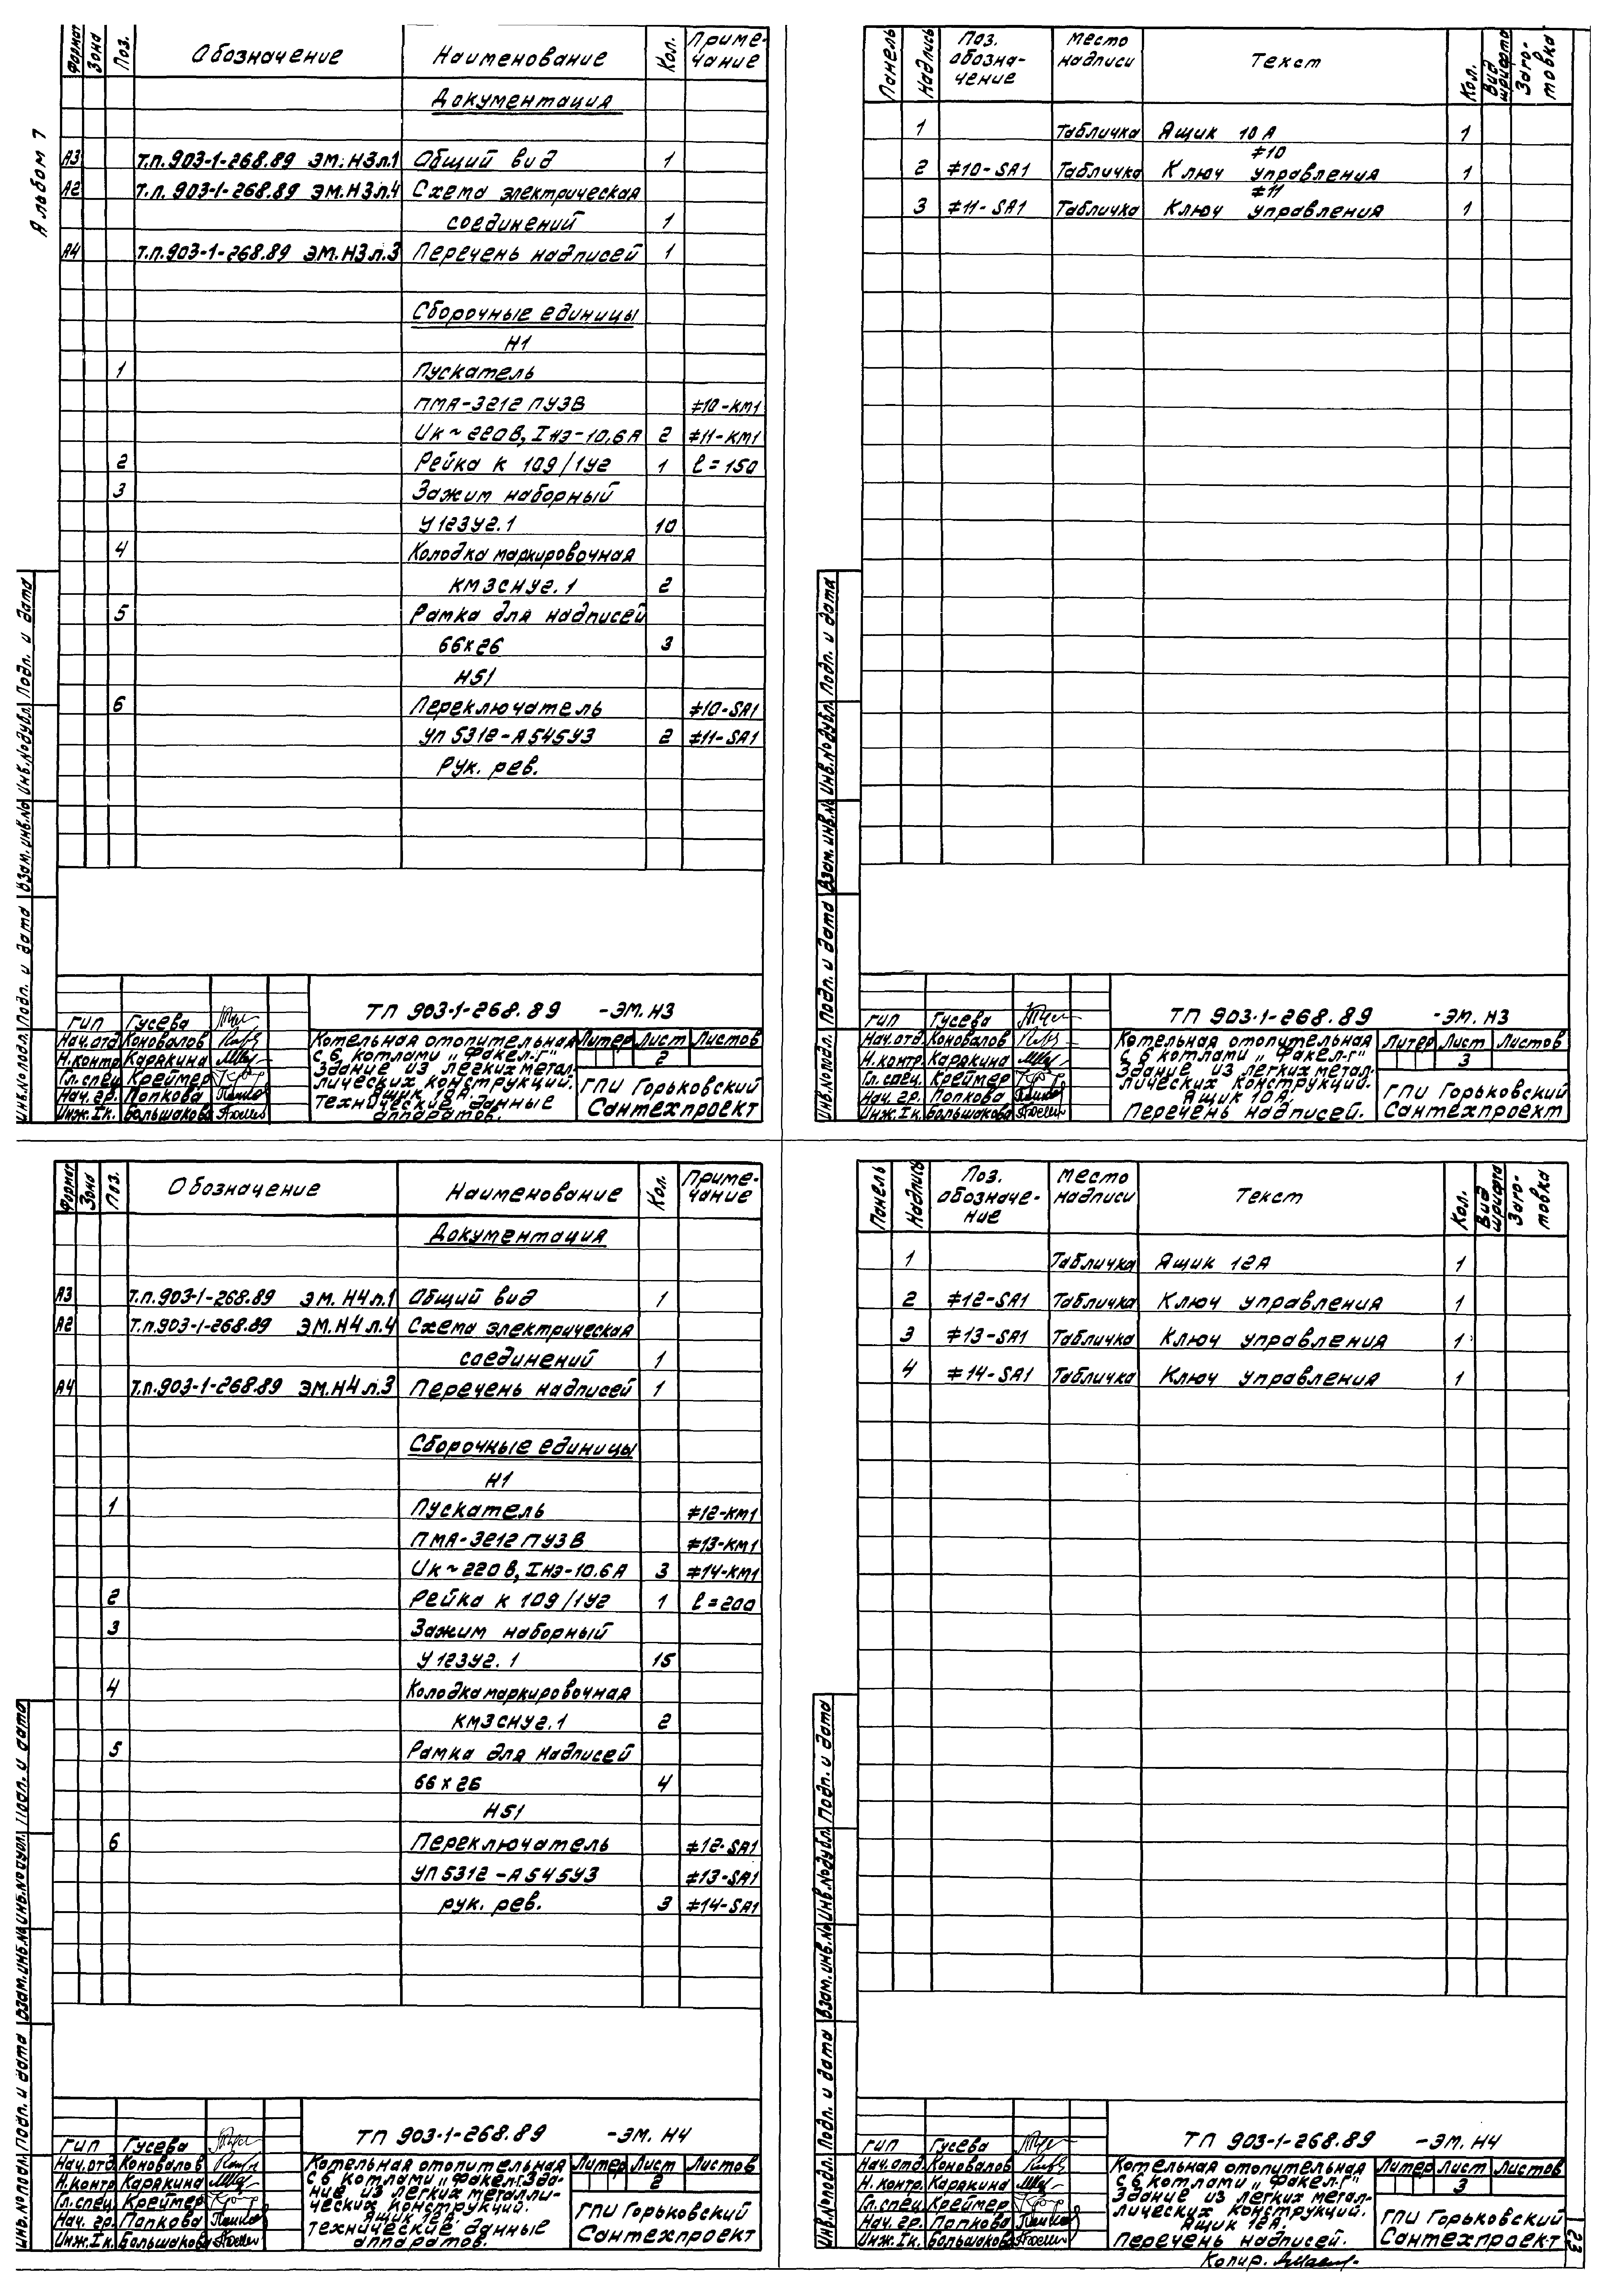 Альбом 7
Формат Зона Поз. Обозначение Наименование Кол. Приме-
чание
Документация
А3 Т.п.903-1-268.89 ЭМ.Н3л.1 Общий вид 1
А2 Т.п.903-1-268.89 ЭМ.Н3л.4 Схема электрическая
соединений 1
А4 Т.п.903-1-268.89 ЭМ.Н3л.3 Перечень надписей 1
Сборочные единицы
Н1
1 Пускатель
ПМА-3212 ПУ3В ≠10-КМ1
Uк~220В, Iнэ-10.6А 2 ≠11-КМ1
2 Рейка К 109/1У2 1 ℓ=150
3 Зажим наборный
У123У2.1 10
4 Колодка маркировочная
КМ3СНУ2.1 2
5 Рамка для надписей
66х26 3
Н51
6 Переключатель ≠10-SA1
УП5312-А545У3 2 ≠11-SA1
Рук. рев.
Инв.№подл. Подп. и дата Взам.инв.№ Инв.№дубл. Подп. и дата
ТП 903-1-268.89 -ЭМ.Н3
ГИП Гусева
Нач.отд Коновалов
Н.контр Карякина
Гл.спец Креймер
Нач.гр. Попкова
Инж.Iк. Большакова
Котельная отопительная
с 6 котлами „Факел-Г"
Здание из легких метал-
лических конструкций.
Ящик 10А.
Технические данные
аппаратов.
Литер Лист Листов
2
ГПИ Горьковский
Сантехпроект
Панель Надпись Поз.
обозна-
чение Место
надписи Текст Кол. Вид
шрифта Заго-
товка
1 Табличка Ящик 10А 1
≠10
2 ≠10-SA1 Табличка Ключ управления 1
≠11
3 ≠11-SA1 Табличка Ключ управления 1
Инв.№подл. Подп. и дата Взам.инв.№ Инв.№дубл. Подп. и дата
ТП 903-1-268.89 -ЭМ.Н3
ГИП Гусева
Нач.отд Коновалов
Н.контр. Карякина
Гл.спец. Креймер
Нач.гр. Попкова
Инж.Iк. Большакова
Котельная отопительная
с 6 котлами „Факел-Г"
Здание из легких метал-
лических конструкций.
Ящик 10А.
Перечень надписей.
Литер Лист Листов
3
ГПИ Горьковский
Сантехпроект
Формат Зона Поз. Обозначение Наименование Кол. Приме-
чание
Документация
А3 Т.п.903-1-268.89 ЭМ.Н4л.1 Общий вид 1
А2 Т.п.903-1-268.89 ЭМ.Н4л.4 Схема электрическая
соединений 1
А4 Т.п.903-1-268.89 ЭМ.Н4л.3 Перечень надписей 1
Сборочные единицы
Н1
1 Пускатель ≠12-КМ1
ПМА-3212 ПУ3В ≠13-КМ1
Uк~220В, Iнэ-10.6А 3 ≠14-КМ1
2 Рейка К 109/1У2 1 ℓ=200
3 Зажим наборный
У123У2.1 15
4 Колодка маркировочная
КМ3СНУ2.1 2
5 Рамка для надписей
66х26 4
Н51
6 Переключатель ≠12-SA1
УП5312-А545У3 ≠13-SA1
рук. рев. 3 ≠14-SA1
Инв.№подл. Подп. и дата Взам.инв.№ Инв.№дубл. Подп. и дата
ТП 903-1-268.89 -ЭМ.Н4
ГИП Гусева
Нач.отд Коновалов
Н.контр Карякина
Гл.спец Креймер
Нач.гр. Попкова
Инж.Iк. Большакова
Котельная отопительная
с 6 котлами „Факел-Г.Зда-
ние из легких металли-
ческих конструкций.
Ящик 12А.
Технические данные
аппаратов.
Литер Лист Листов
2
ГПИ Горьковский
Сантехпроект
Панель Надпись Поз.
обозначе-
ние Место
надписи Текст Кол. Вид
шрифта Заго-
товка
1 Табличка Ящик 12А 1
2 ≠12-SA1 Табличка Ключ управления 1
3 ≠13-SA1 Табличка Ключ управления 1
4 ≠14-SA1 Табличка Ключ управления 1
Инв.№подл. Подп. и дата Взам.инв.№ Инв.№дубл. Подп. и дата
ТП 903-1-268.89 -ЭМ.Н4
ГИП Гусева
Нач.отд. Коновалов
Н.контр. Карякина
Гл.спец. Креймер
Нач.гр. Попкова
Инж.Iк. Большакова
Котельная отопительная
с 6 котлами „Факел-Г"
Здание из легких метал-
лических конструкций.
Ящик 12А.
Перечень надписей.
Литер Лист Листов
3
ГПИ Горьковский
Сантехпроект
Копир.
23